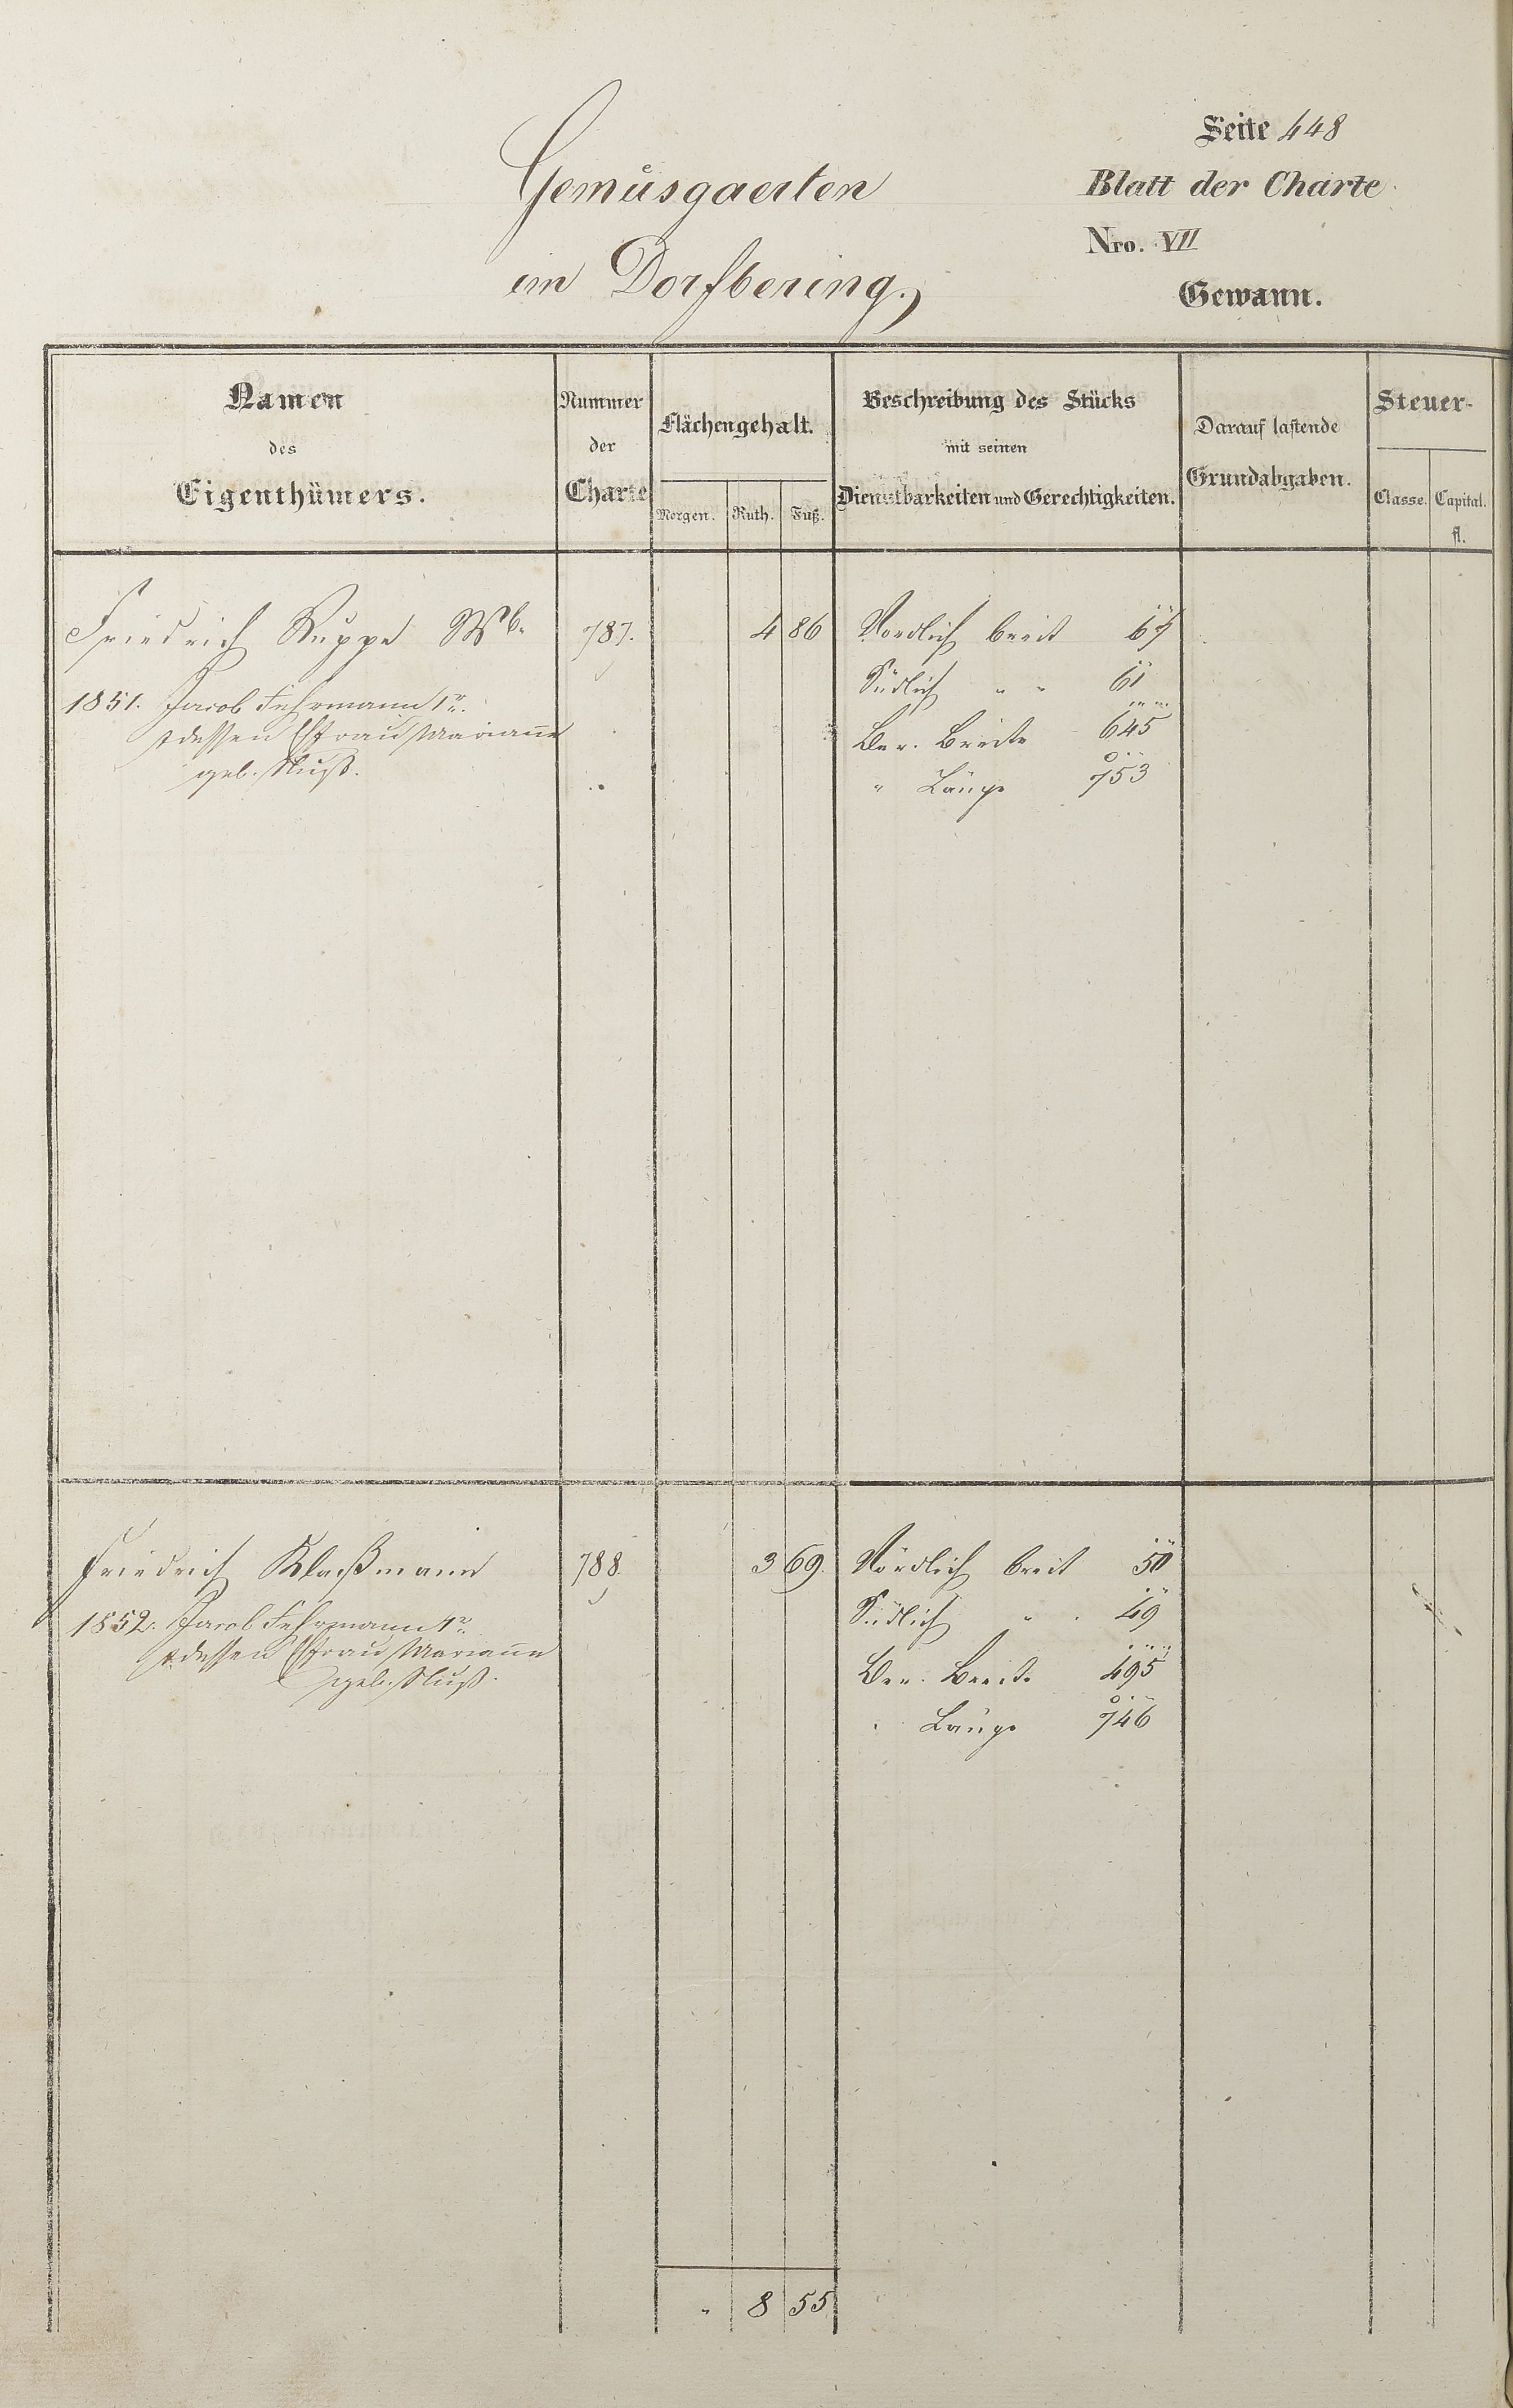 Seite 448
Gemüsgaerten
Blatt der Charte
Nro. VII
im Dorfbering.
Gewann.
Namen des Eigenthümers.
Nummer der Charte
Flächengehalt.
Morgen. Ruth. Fuß.
Beschreibung des Stücks mit seinen Dienstbarkeiten und Gerechtigkeiten.
Darauf lastende Grundabgaben.
Steuer-
Classe. Capital. fl.
Friedrich Ruppe Wb. 787. 4 86 Nordlich breit
1851. Jacob Fehrmann 1r. Südlich " " 61
& dessen Efrau Marianne Ber. Breite 645
geb. " Länge 753
Friedrich Klaßmann 788. 3 69 Nördlich breit 50
1852. Jacob Fehrmann 1r. Südlich " 49
& dessen Efrau Marianne Ber. Breite 495
geb. " Länge 746
" 8 55